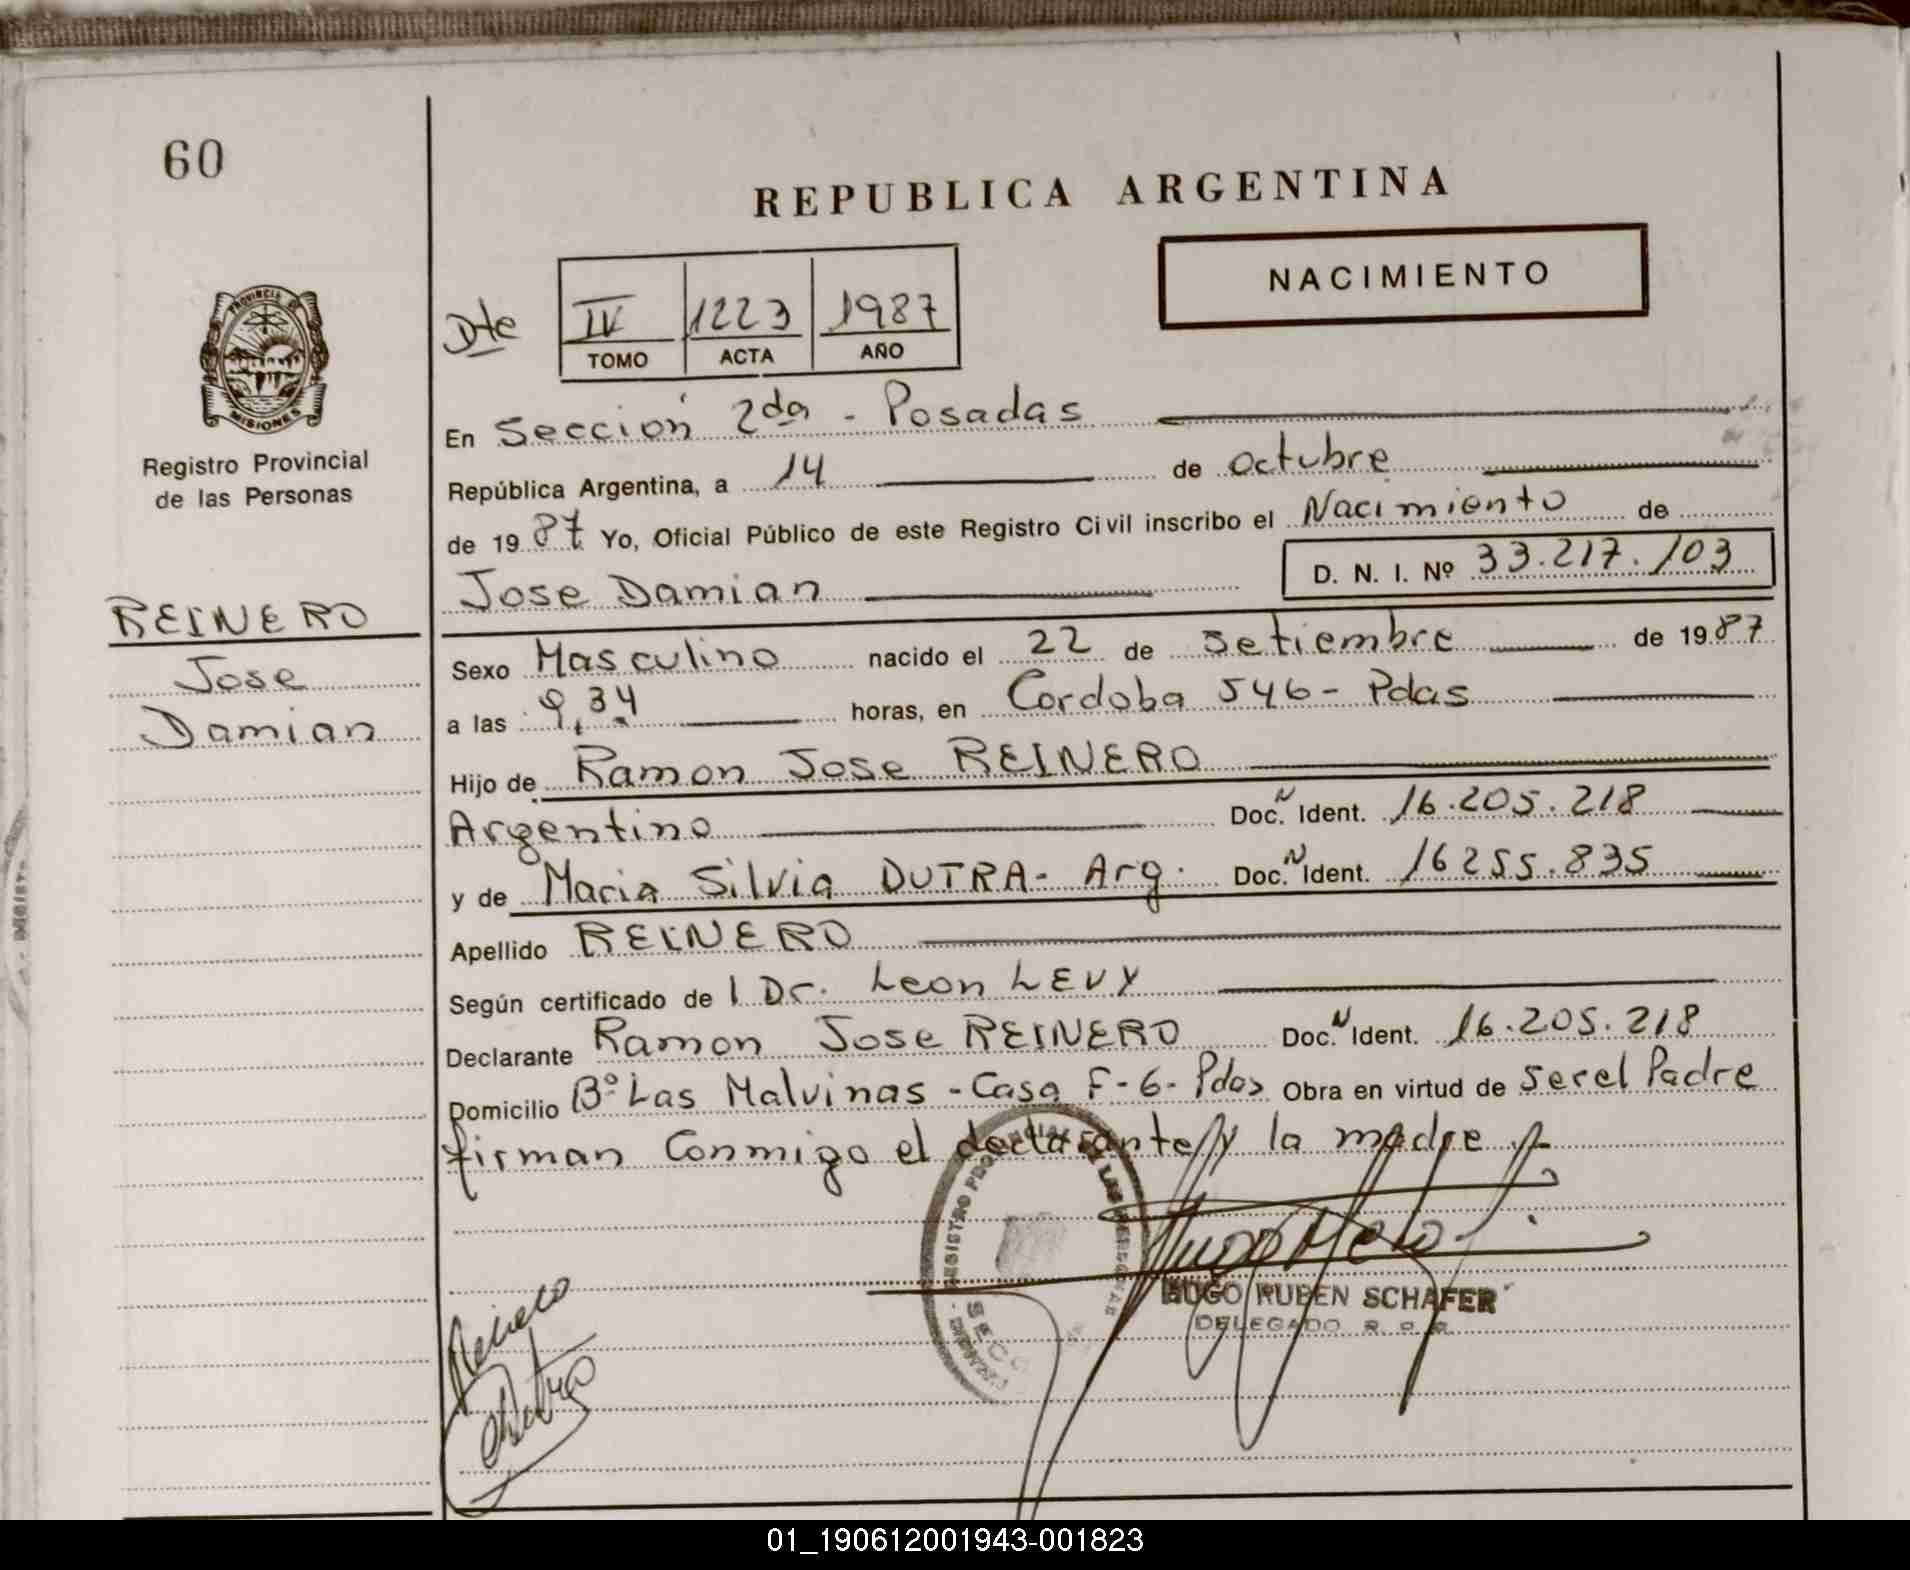 60
REPUBLICA ARGENTINA
NACIMIENTO
Dte
IV 1223 1987
TOMO ACTA AÑO
PROVINCIA DE
MISIONES
Registro Provincial
de las Personas
REINERO
Jose
Damian
En Sección 2da - Posadas
República Argentina, a 14 de octubre
de 1987 Yo, Oficial Público de este Registro Civil inscribo el Nacimiento de
Jose Damian D. N. I. Nº 33.217.103
Sexo Masculino nacido el 22 de Setiembre de 1987
a las 9,34 horas, en Cordoba 546 - Pdas
Hijo de Ramon Jose REINERO
Argentino Doc. N Ident. 16.205.218
y de Maria Silvia DUTRA - Arg. Doc. N Ident. 16255.835
Apellido REINERO
Según certificado de l Dr. Leon LEVY
Declarante Ramon Jose REINERO Doc. N Ident. 16.205.218
Domicilio Bº Las Malvinas - Casa F-6- Pdas Obra en virtud de Ser el Padre
firman Conmigo el declarante y la madre
REGISTRO PROVINCIAL DE LAS PERSONAS
SECC
HUGO RUBEN SCHAFER
DELEGADO R. P. P.
Reinero
Dutra
01_190612001943-001823